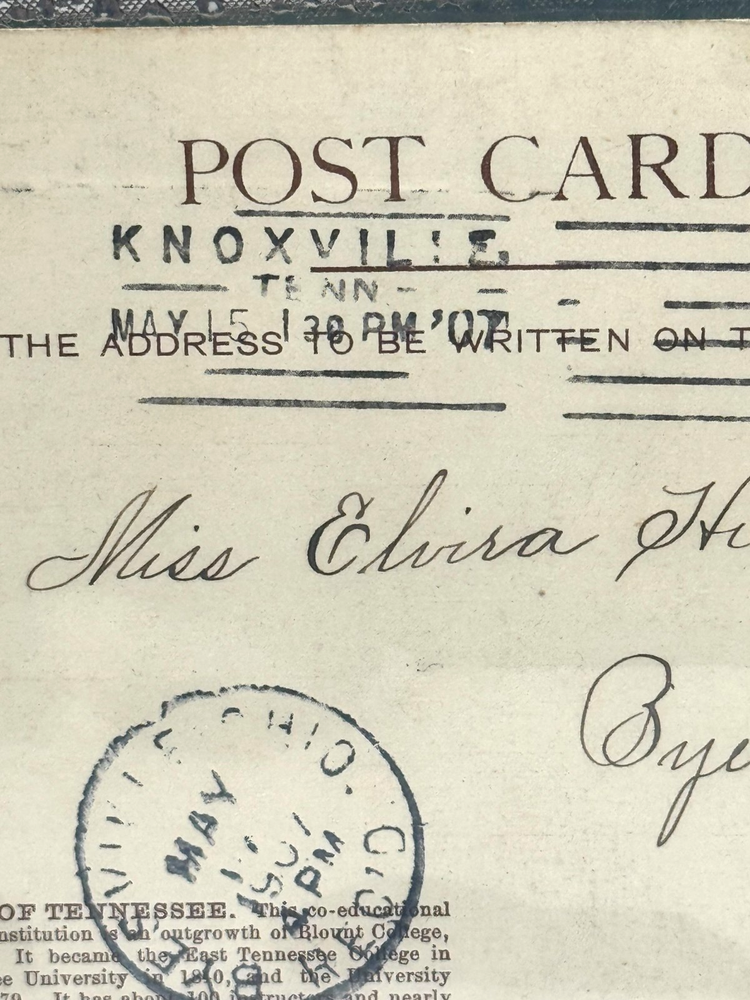 POST CARD
KNOXVILLE
TENN
MAY 15 1 30 PM '07
THE ADDRESS TO BE WRITTEN ON
Miss Elvira
OHIO.
MAY
1907
4 PM
REC'D
OF TENNESSEE. This co-educational
institution is an outgrowth of Blount College,
It became the East Tennessee College in
University in 1840, and the University
79. It has about 100 instructors and nearly